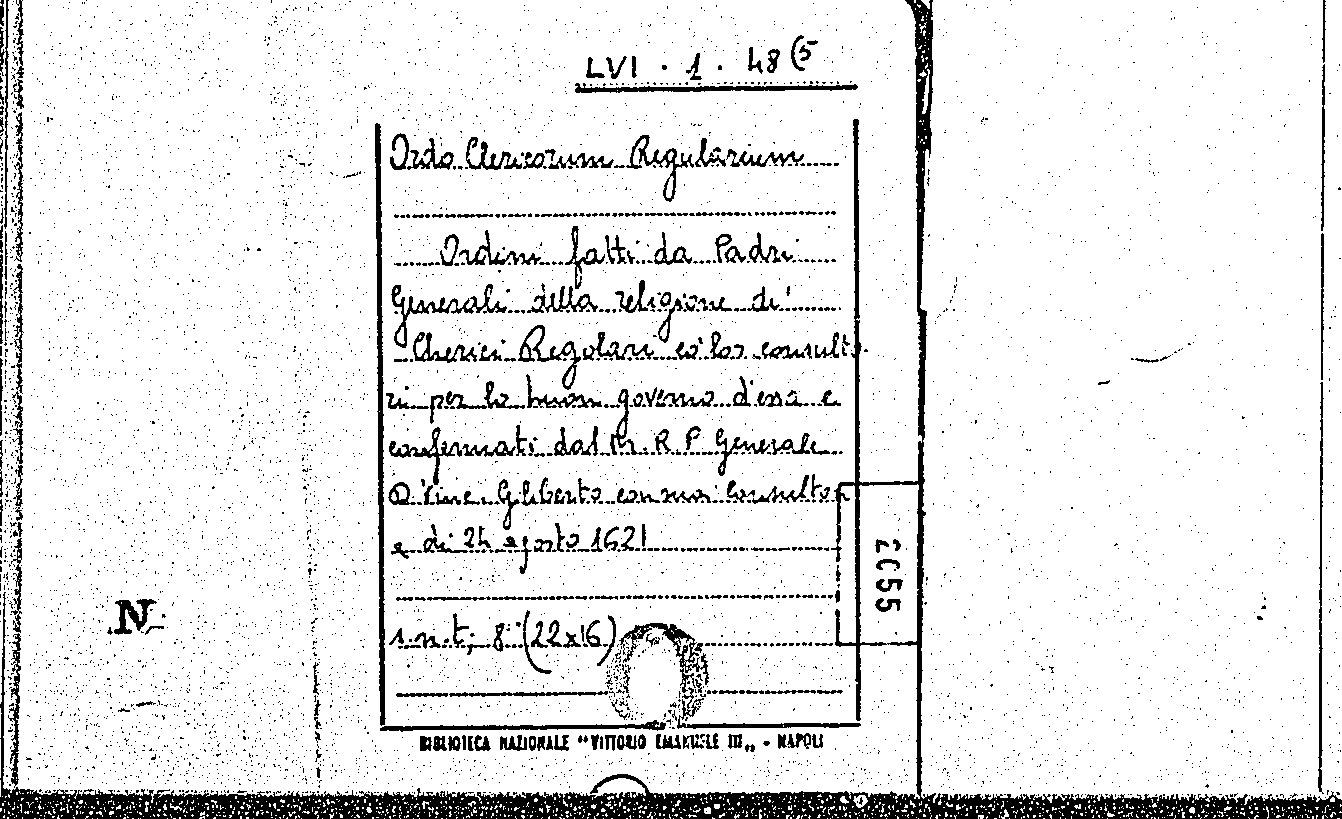 LVI . 1 . 48 (5
Ordo Clericorum Regularium
Ordini fatti da Padri
Generali della religione di'
Cherici Regolari co' lor consulto
ri per lo buon governo d'essa e
confermati dal M. R. P. Generale
D. Vinc. Giliberto con suoi Consultori
e di 24 agosto 1621
s.n.t; 8° (22x16)
BIBLIOTECA NAZIONALE "VITTORIO EMANUELE III„ - NAPOLI
2055
N